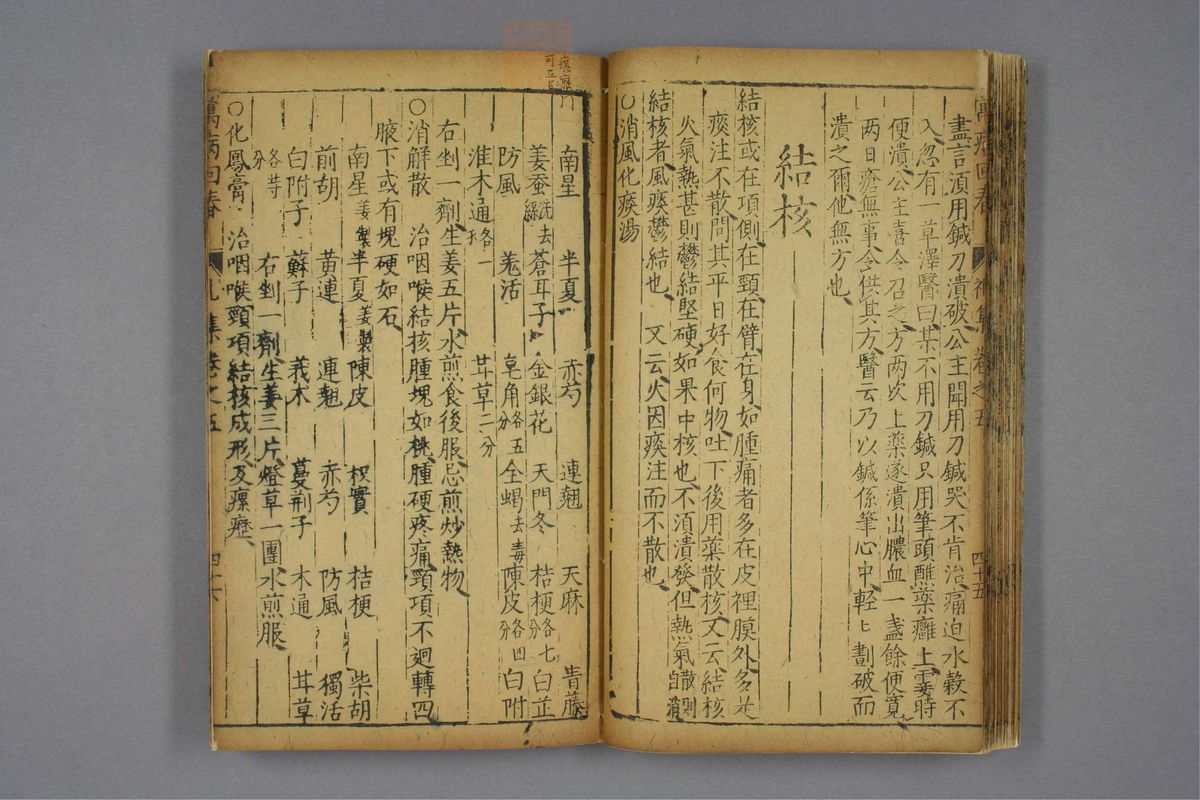 萬病回春 禮集 卷之五 四十五
盡言須用鍼刀潰破公主聞用刀鍼哭不肯治痛迫水穀不
入忽有一草澤醫曰某不用刀鍼只用筆頭蘸藥癰上霎時
便潰公主喜令召之方兩次上藥遂潰出膿血一盞餘便寬
兩日瘡無事令供其方醫云乃以鍼係筆心中輕輕劃破而
潰之爾他無方也
結核
結核或在項側在頸在臂在身如腫痛者多在皮裡膜外多是
痰注不散問其平日好食何物吐下後用藥散核又云結核
火氣熱甚則鬱結堅硬如果中核也不須潰發但熱氣散則自消
結核者風痰鬱結也 又云火因痰注而不散也
○消風化痰湯
南星 半夏 赤芍 連翹 天麻 青藤
姜蚕洗去絲 蒼耳子 金銀花 天門冬 桔梗各七分 白芷
防風 羗活 皂角各五分 全蝎去毒 陳皮各四分 白附
淮木通各一 甘草二分
右剉一劑生姜五片水煎食後服忌煎炒熱物
○消解散 治咽喉結核腫塊如桃腫硬疼痛頸項不迴轉四
腋下或有塊硬如石
南星姜製 半夏姜製 陳皮 枳實 桔梗 柴胡
前胡 黃連 連翹 赤芍 防風 獨活
白附子 蘇子 莪朮 蔓荆子 木通 甘草
各等分 右剉一劑生姜三片燈草一團水煎服
○化鳳膏 治咽喉頸項結核成形及瘰癧
萬病回春 禮集卷之五 四十六